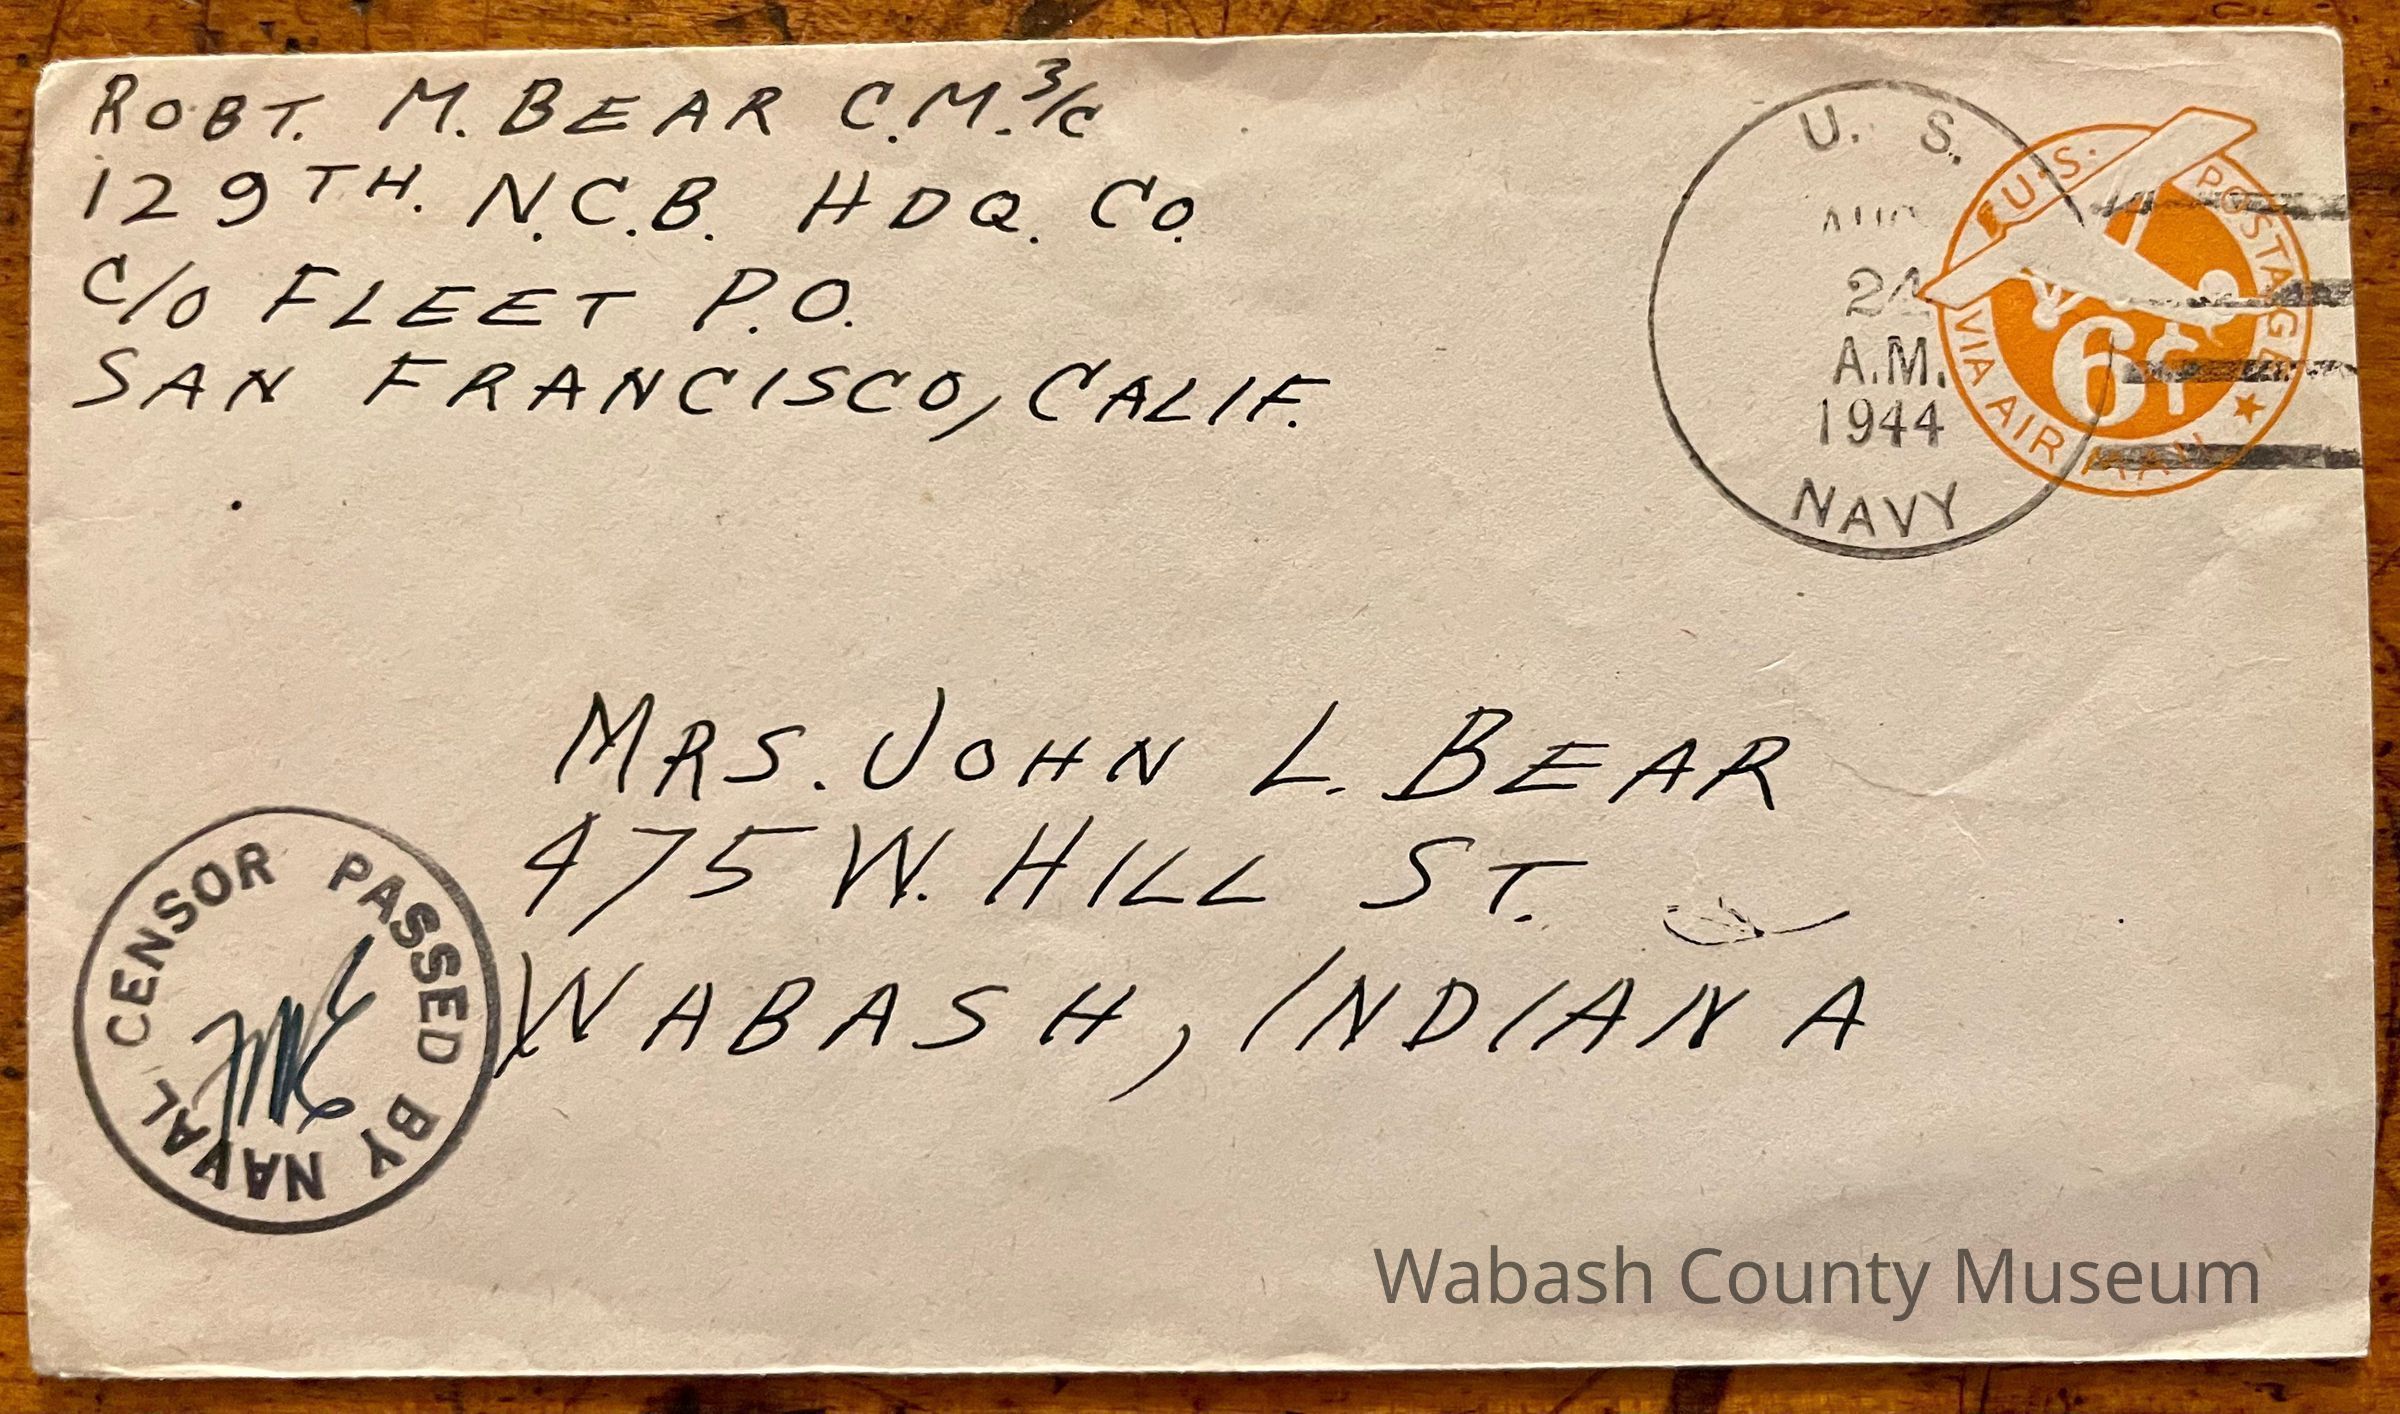 ROBT. M. BEAR C.M.3/C
129TH. N.C.B. HDQ. CO.
C/O FLEET P.O.
SAN FRANCISCO, CALIF.
U. S.
24
A.M.
1944
NAVY
U.S. POSTAGE
6¢
VIA AIR MAIL
MRS. JOHN L. BEAR
475 W. HILL ST.
WABASH, INDIANA
PASSED BY NAVAL CENSOR
Wabash County Museum